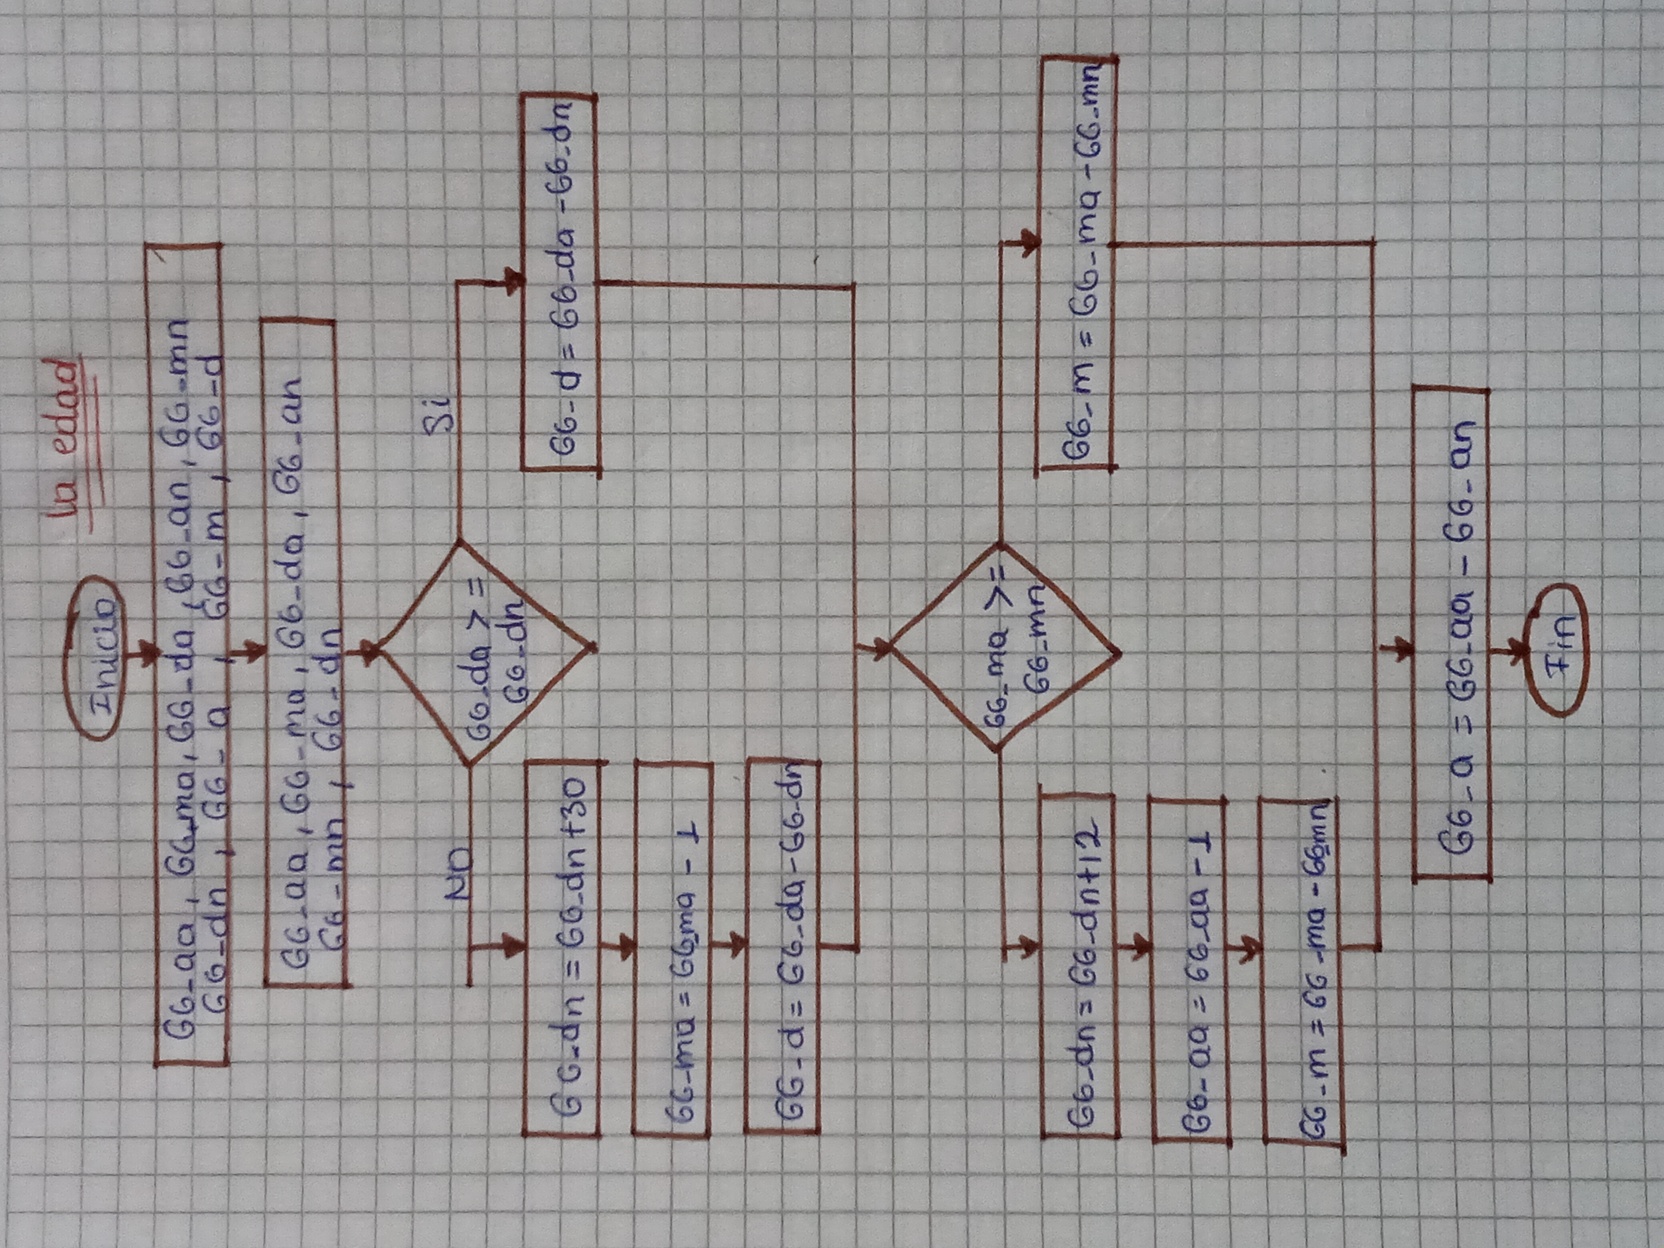 la edad
Inicio
GG_aa, GG_ma, GG_da, GG_an, GG_mn
GG_dn, GG_a, GG_m, GG_d
GG_aa, GG_ma, GG_da, GG_an
GG_mn, GG_dn
NO
Si
GG_da >=
GG_dn
GG_dn = GG_dn+30
GG_d = GG_da - GG_dn
GG_ma = GG_ma - 1
GG_d = GG_da - GG_dn
GG_ma >=
GG_mn
GG_dn = GG_dn+12
GG_m = GG_ma - GG_mn
GG_aa = GG_aa - 1
GG_m = GG_ma - GG_mn
GG_a = GG_aa - GG_an
Fin